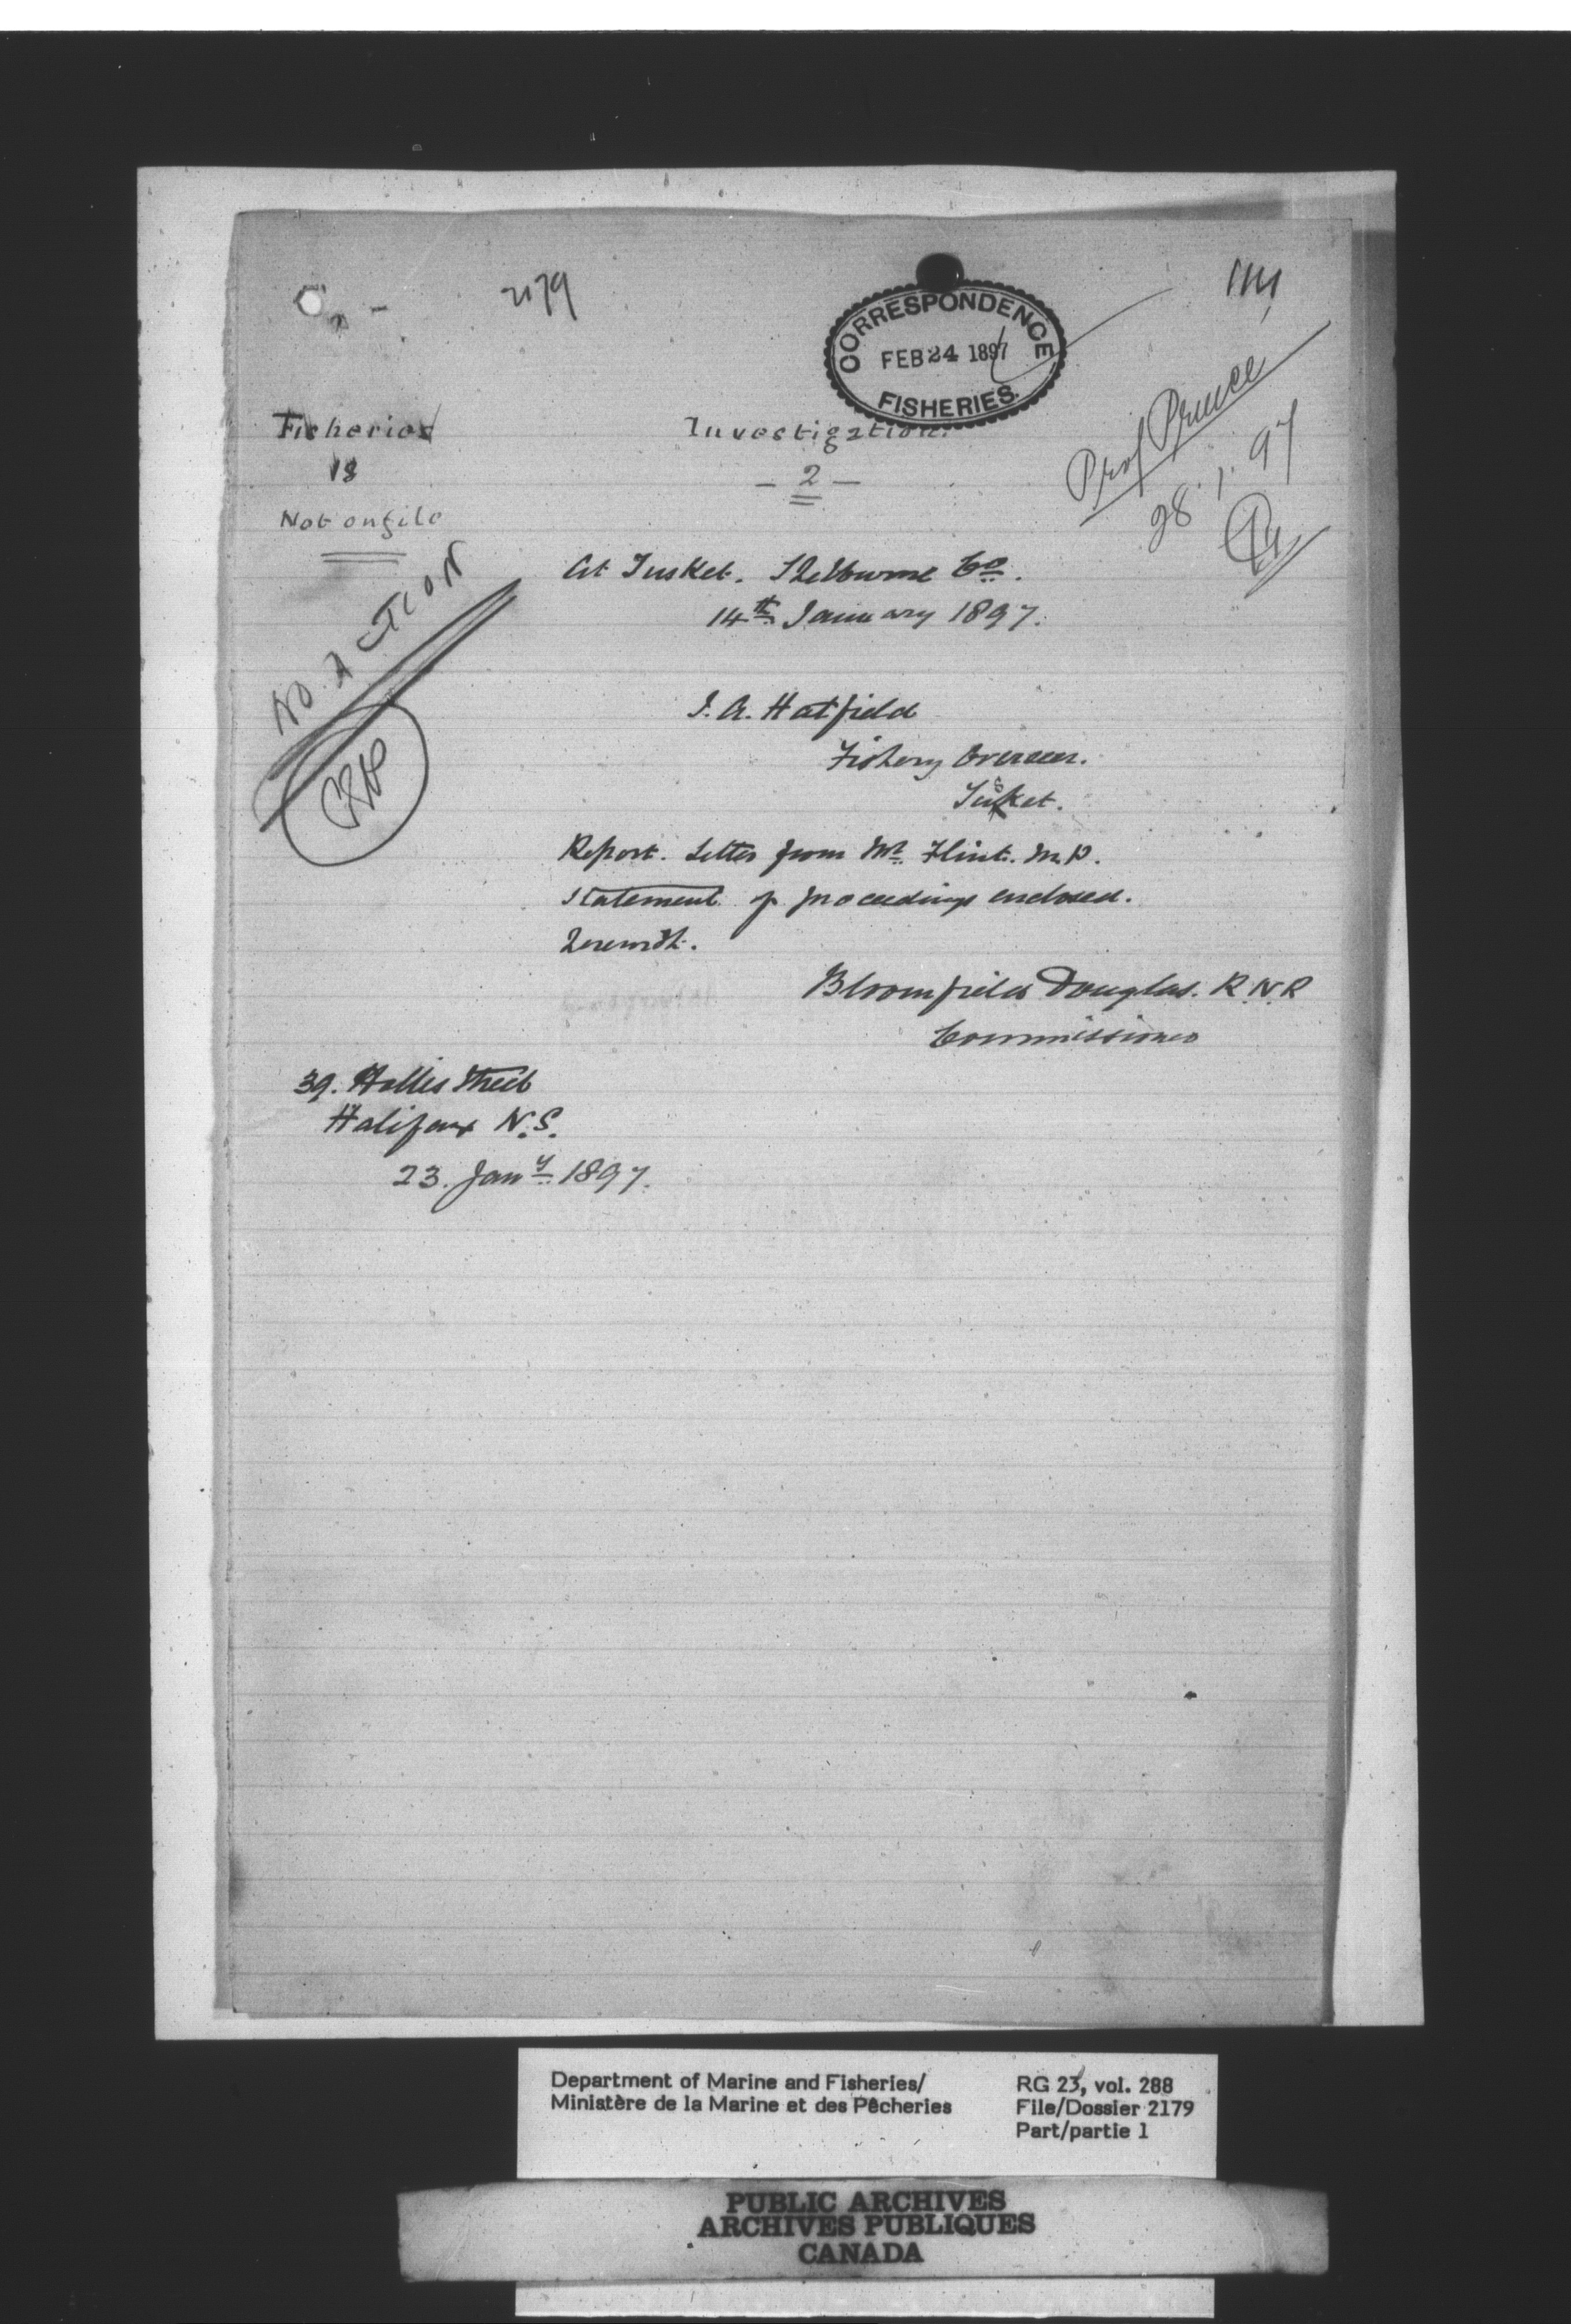 2179
CORRESPONDENCE
FEB 24 1897
FISHERIES.
Fisheries
18
Not on file
Investigation.
- 2 -
Prof Prince
28.1.97
NO ACTION
At Tusket. Shelburne Co.
14th January 1897.
J. A. Hatfield
Fishery Overseer.
Tusket.
Report. Letter from Mr. Flint. M.P.
Statement of proceedings enclosed.
herewith.
Bloomfield Douglas. R.N.R
Commissioner
39. Hollis Street
Halifax N.S.
23. Jany 1897.
Department of Marine and Fisheries/
Ministère de la Marine et des Pêcheries
RG 23, vol. 288
File/Dossier 2179
Part/partie 1
PUBLIC ARCHIVES
ARCHIVES PUBLIQUES
CANADA